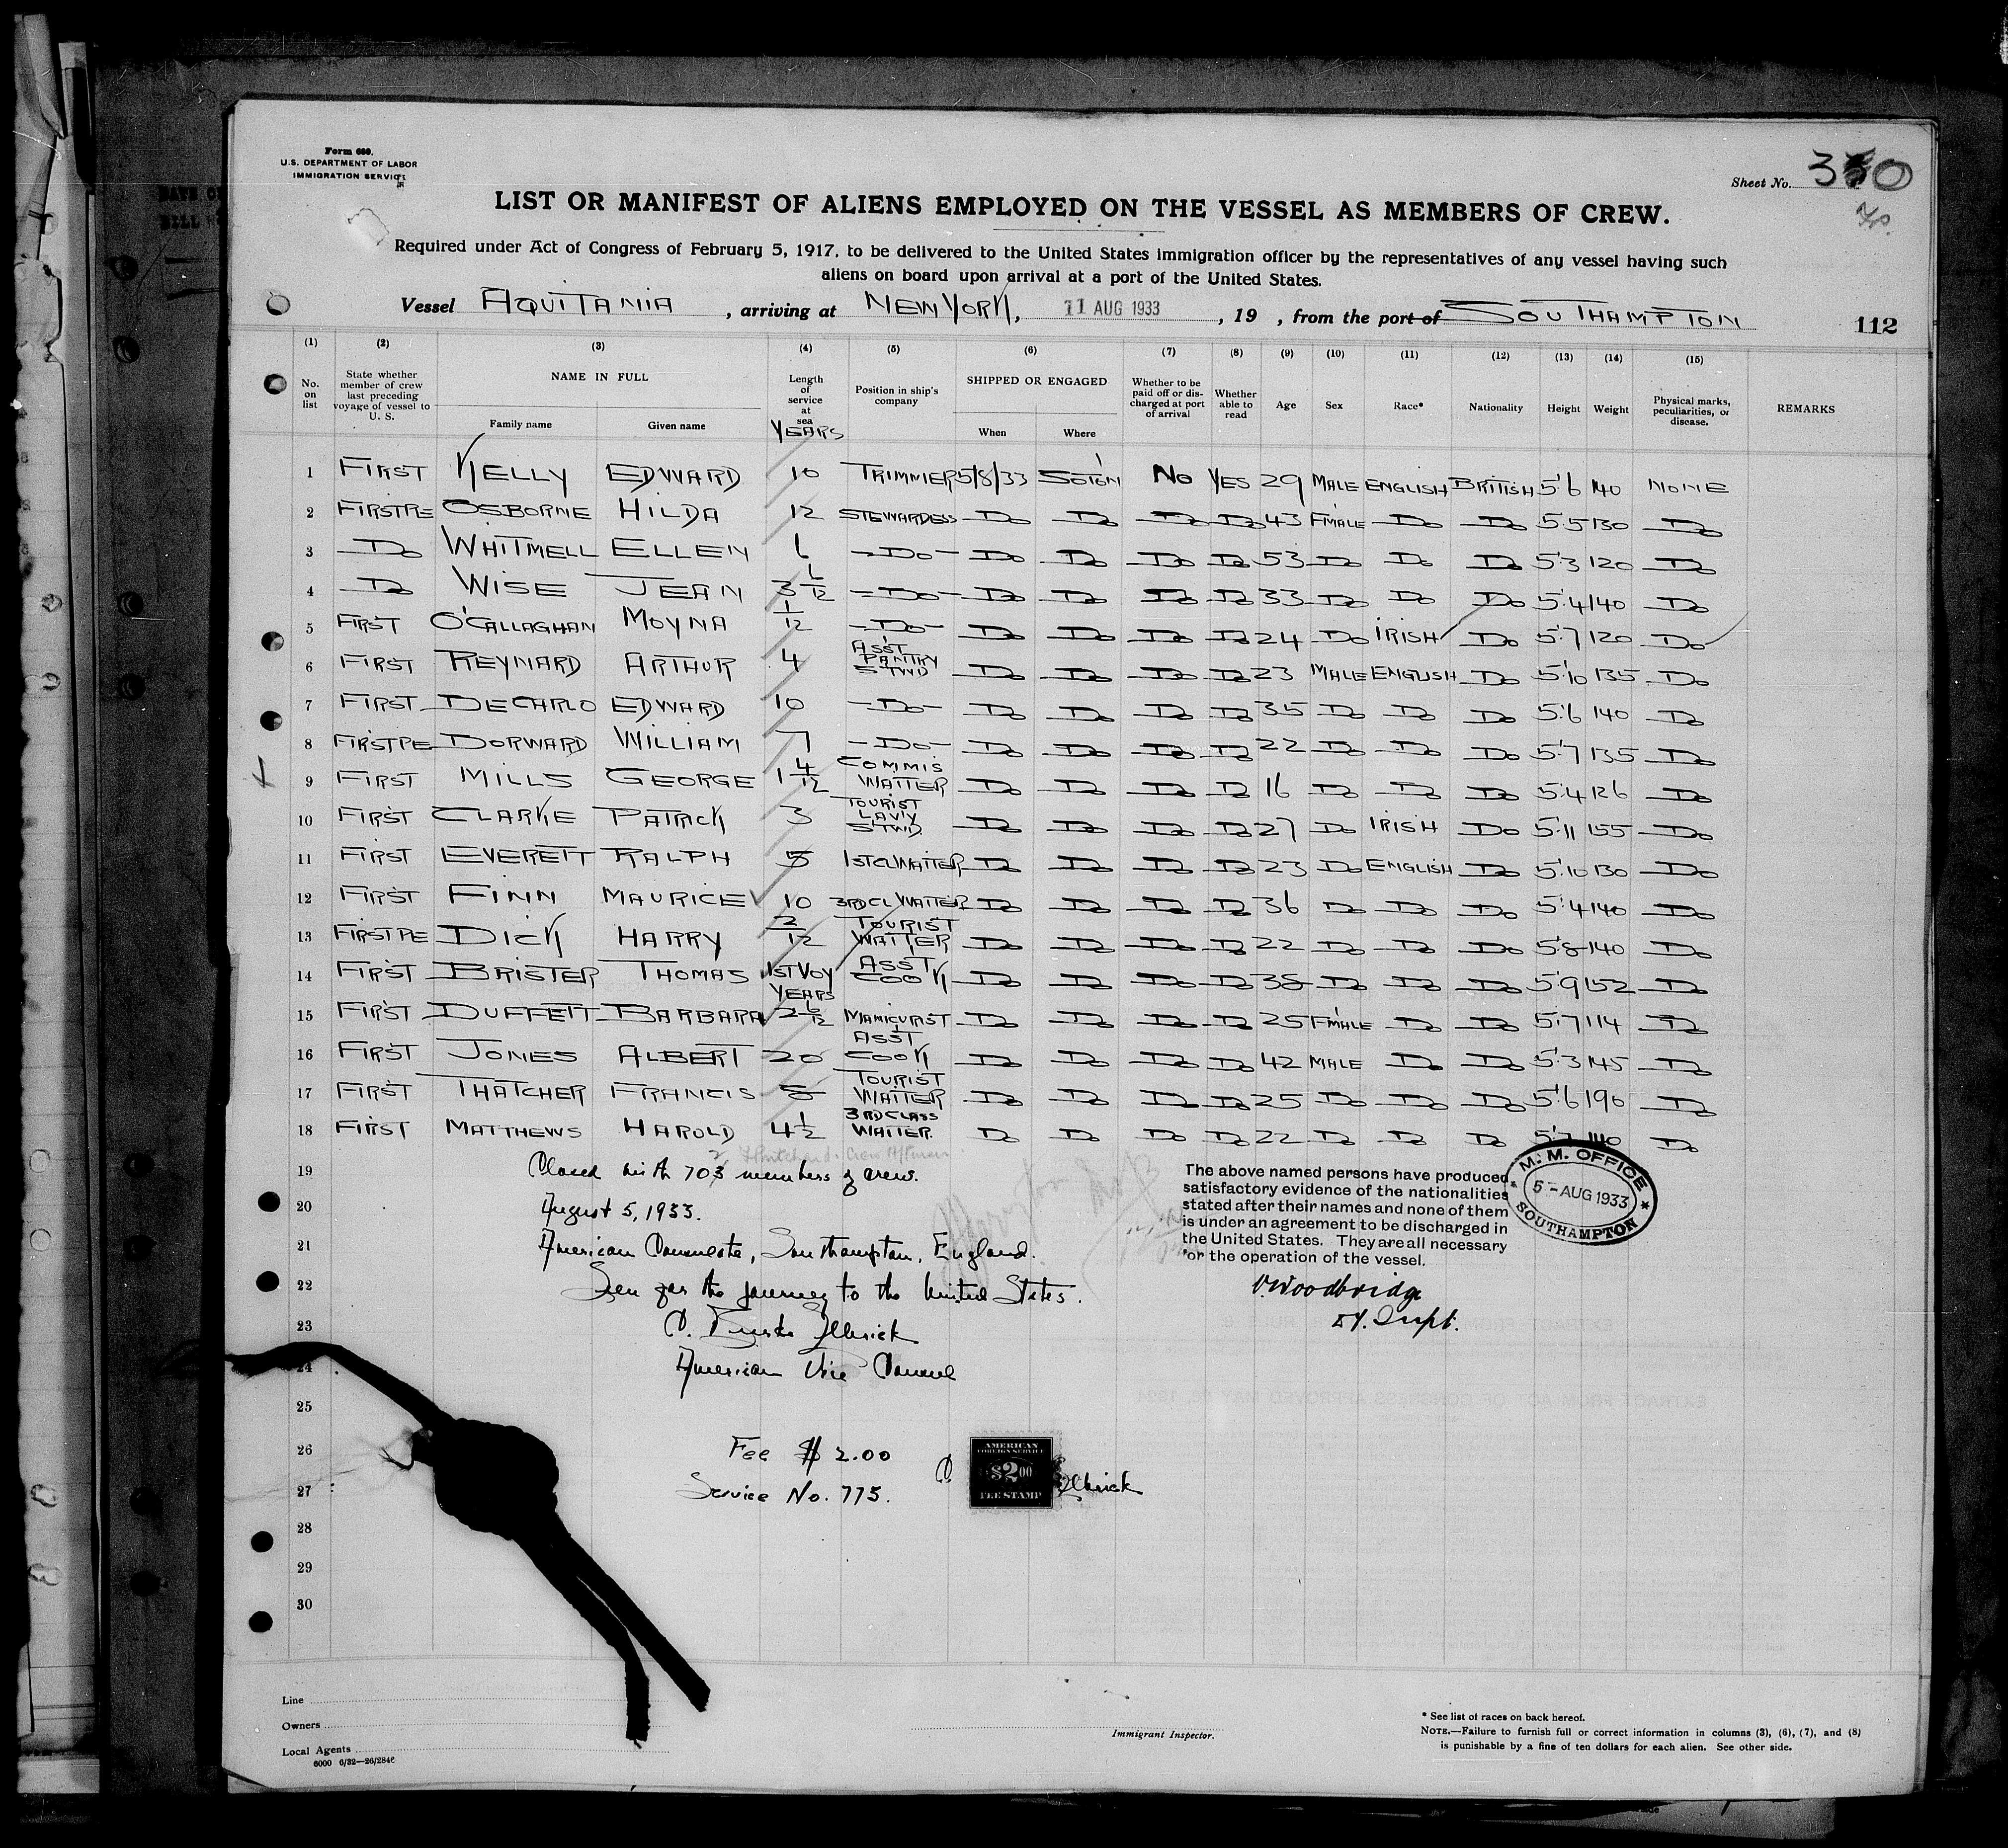 Form 680.
U.S. DEPARTMENT OF LABOR
IMMIGRATION SERVICE
Sheet No.
LIST OR MANIFEST OF ALIENS EMPLOYED ON THE VESSEL AS MEMBERS OF CREW.
Required under Act of Congress of February 5, 1917, to be delivered to the United States immigration officer by the representatives of any vessel having such
aliens on board upon arrival at a port of the United States.
Vessel AQUITANIA , arriving at NEW YORK, 11 AUG 1933 , 19 , from the port of SOUTHAMPTON
112
(1) (2) (3) (4) (5) (6) (7) (8) (9) (10) (11) (12) (13) (14) (15)
No. on list
State whether member of crew last preceding voyage of vessel to U. S.
NAME IN FULL
Family name Given name
Length of service at sea YEARS
Position in ship's company
SHIPPED OR ENGAGED
When Where
Whether to be paid off or discharged at port of arrival
Whether able to read
Age Sex Race* Nationality Height Weight
Physical marks, peculiarities, or disease.
REMARKS
1 FIRST KELLY EDWARD 10 TRIMMER 5/8/33 SOTON NO YES 29 MALE ENGLISH BRITISH 5'6 140 NONE
2 FIRSTPE OSBORNE HILDA 12 STEWARDESS DO DO DO DO 43 F'MALE DO DO 5'5 130 DO
3 DO WHITMELL ELLEN 6 -DO- DO DO DO DO 53 DO DO DO 5'3 120 DO
4 DO WISE JEAN 3 6/12 -DO- DO DO DO DO 33 DO DO DO 5'4 140 DO
5 FIRST O'CALLAGHAN MOYNA 1/12 -DO- DO DO DO DO 24 DO IRISH DO 5'7 120 DO
6 FIRST REYNARD ARTHUR 4 ASST PANTRY STWD DO DO DO DO 23 MALE ENGLISH DO 5'10 135 DO
7 FIRST DECARLO EDWARD 10 -DO- DO DO DO DO 35 DO DO DO 5'6 140 DO
8 FIRSTPE DORWARD WILLIAM 7 -DO- DO DO DO DO 22 DO DO DO 5'7 135 DO
9 FIRST MILLS GEORGE 1 4/12 COMMIS WAITER DO DO DO DO 16 DO DO DO 5'4 126 DO
10 FIRST CLARKE PATRICK 3 TOURIST LAVY STWD DO DO DO DO 27 DO IRISH DO 5'11 155 DO
11 FIRST EVERETT RALPH 5 1STCLWAITER DO DO DO DO 23 DO ENGLISH DO 5'10 130 DO
12 FIRST FINN MAURICE 10 3RDCLWAITER DO DO DO DO 36 DO DO DO 5'4 140 DO
13 FIRSTPE DICK HARRY 2/12 TOURIST WAITER DO DO DO DO 22 DO DO DO 5'8 140 DO
14 FIRST BRISTER THOMAS 1ST VOY ASST COOK DO DO DO DO 38 DO DO DO 5'9 152 DO
15 FIRST DUFFETT BARBARA YEARS 2 6/12 MANICURIST DO DO DO DO 25 F'MALE DO DO 5'7 114 DO
16 FIRST JONES ALBERT 20 ASST COOK DO DO DO DO 42 MALE DO DO 5'3 145 DO
17 FIRST THATCHER FRANCIS 8 TOURIST WAITER DO DO DO DO 25 DO DO DO 5'6 190 DO
18 FIRST MATTHEWS HAROLD 4½ 3RDCLASS WAITER. DO DO DO DO 22 DO DO DO 5'7 DO
19 Closed with 703 members of crew.
20 August 5, 1933.
21 American Consulate, Southampton, England.
22 Seen for the journey to the United States.
23
24 American Vice Consul
25
26 Fee $ 2.00
27 Service No. 773.
28
29
30
The above named persons have produced
satisfactory evidence of the nationalities
stated after their names and none of them
is under an agreement to be discharged in
the United States. They are all necessary
for the operation of the vessel.
V. Woodbridge
Dy. Supt.
M. M. OFFICE
5 - AUG 1933
SOUTHAMPTON
AMERICAN
FOREIGN SERVICE
$2.00
FEE STAMP
Line
Owners
Local Agents
6000 6/32—26/2846
Immigrant Inspector.
* See list of races on back hereof.
NOTE.—Failure to furnish full or correct information in columns (3), (6), (7), and (8)
is punishable by a fine of ten dollars for each alien. See other side.